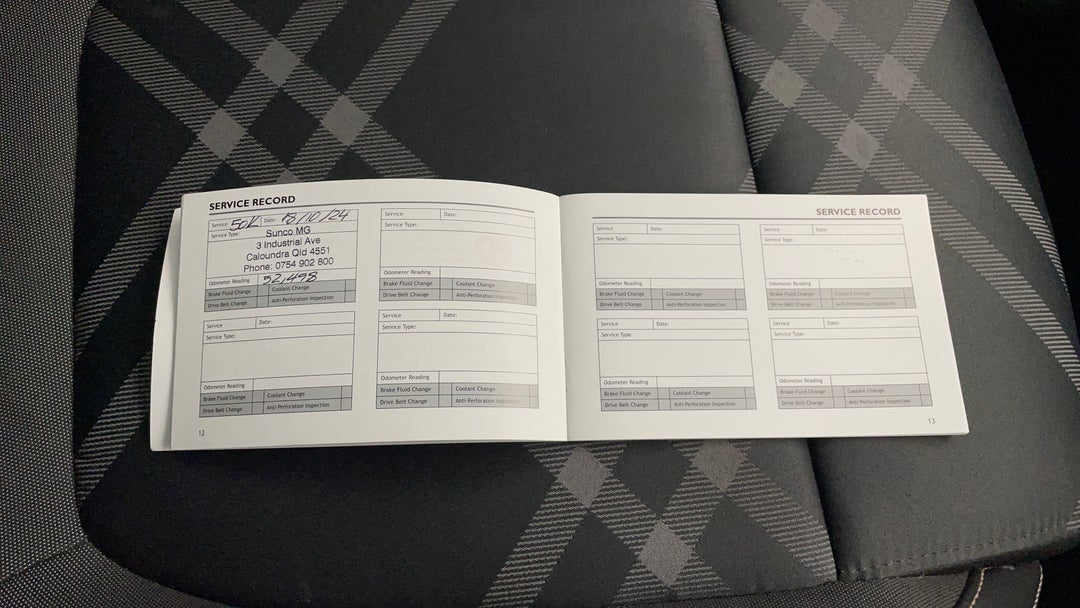 SERVICE RECORD
Service 50K Date 18/10/24
Service Type: Sunco MG
3 Industrial Ave
Caloundra Qld 4551
Phone: 0754 902 800
Odometer Reading 52,498
Brake Fluid Change Coolant Change
Drive Belt Change Anti-Perforation Inspection
Service Date:
Service Type:
Odometer Reading
Brake Fluid Change Coolant Change
Drive Belt Change Anti-Perforation Inspection
Service Date:
Service Type:
Odometer Reading
Brake Fluid Change Coolant Change
Drive Belt Change Anti-Perforation Inspection
Service Date:
Service Type:
Odometer Reading
Brake Fluid Change Coolant Change
Drive Belt Change Anti-Perforation Inspection
12
SERVICE RECORD
Service Date:
Service Type:
Odometer Reading
Brake Fluid Change Coolant Change
Drive Belt Change Anti-Perforation Inspection
Service Date:
Service Type:
Odometer Reading
Brake Fluid Change Coolant Change
Drive Belt Change Anti-Perforation Inspection
Service Date:
Service Type:
Odometer Reading
Brake Fluid Change Coolant Change
Drive Belt Change Anti-Perforation Inspection
Service Date:
Service Type:
Odometer Reading
Brake Fluid Change Coolant Change
Drive Belt Change Anti-Perforation Inspection
13